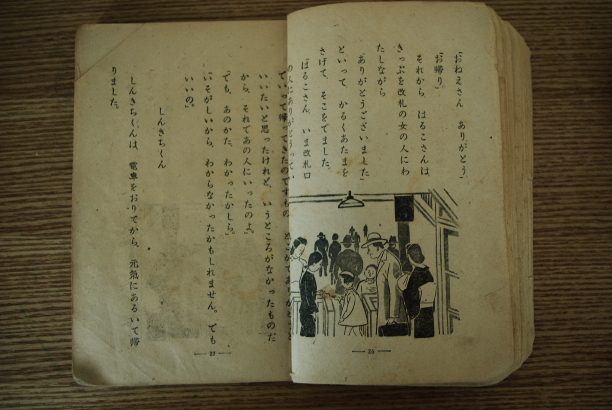 「おねえさん ありがとう」
「お帰り」
それから はるこさんは、
きっぷを改札の女の人にわ
たしながら
「ありがとうございました」
といって かるくあたまを
さげて、そこをでました。
「はるこさん、いま改札口
の人にありがとうって、
ていって帰ってきたのですもの
いいたいと思ったけれど、いうところがなかったものだ
から、それであの人にいったのよ」
「でも、あのかた、わかったかしら」
「いそがしいから、わからなかったかもしれません。でも
いいの」
しんきちくん
しんきちくんは、電車をおりてから、元気にあるいて帰
りました。
— 26 —
— 27 —